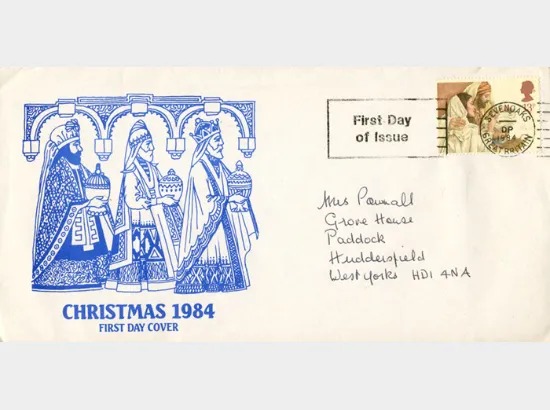 First Day
of Issue
SEVENOAKS
DP
1984
GREAT BRITAIN
Mrs Pownall
Grove House
Paddock
Huddersfield
West Yorks HD1 4NA
CHRISTMAS 1984
FIRST DAY COVER